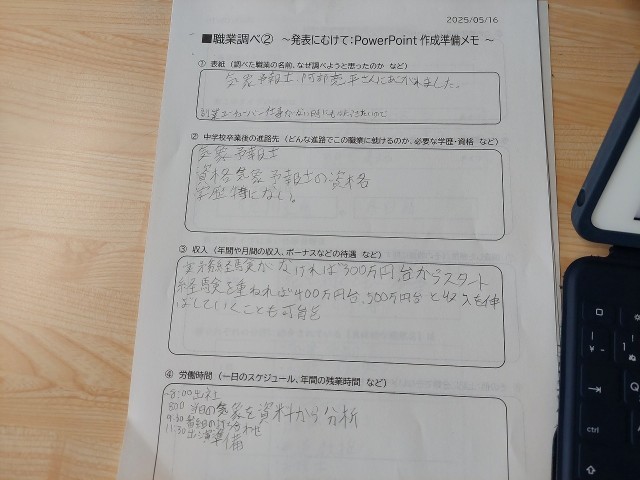 2025/05/16
■職業調べ② ～発表にむけて：PowerPoint 作成準備メモ ～
① 表紙 （調べた職業の名前、なぜ調べようと思ったのか など）
気象予報士、阿部亮平さんにあこがれました。
② 中学校卒業後の進路先 （どんな進路でこの職業に就けるのか、必要な学歴・資格 など）
気象予報士
資格 気象予報士の資格
学歴 特になし。
③ 収入 （年間や月間の収入、ボーナスなどの待遇 など）
経験がなければ300万円台からスタート
経験を重ねれば400万円台、500万円台と収入を伸
ばしていくことも可能
④ 労働時間 （一日のスケジュール、年間の残業時間 など）
8:00出社
800 今日の気象を資料から分析
9:30 打ち合わせ
11:30 出演準備
ctrl